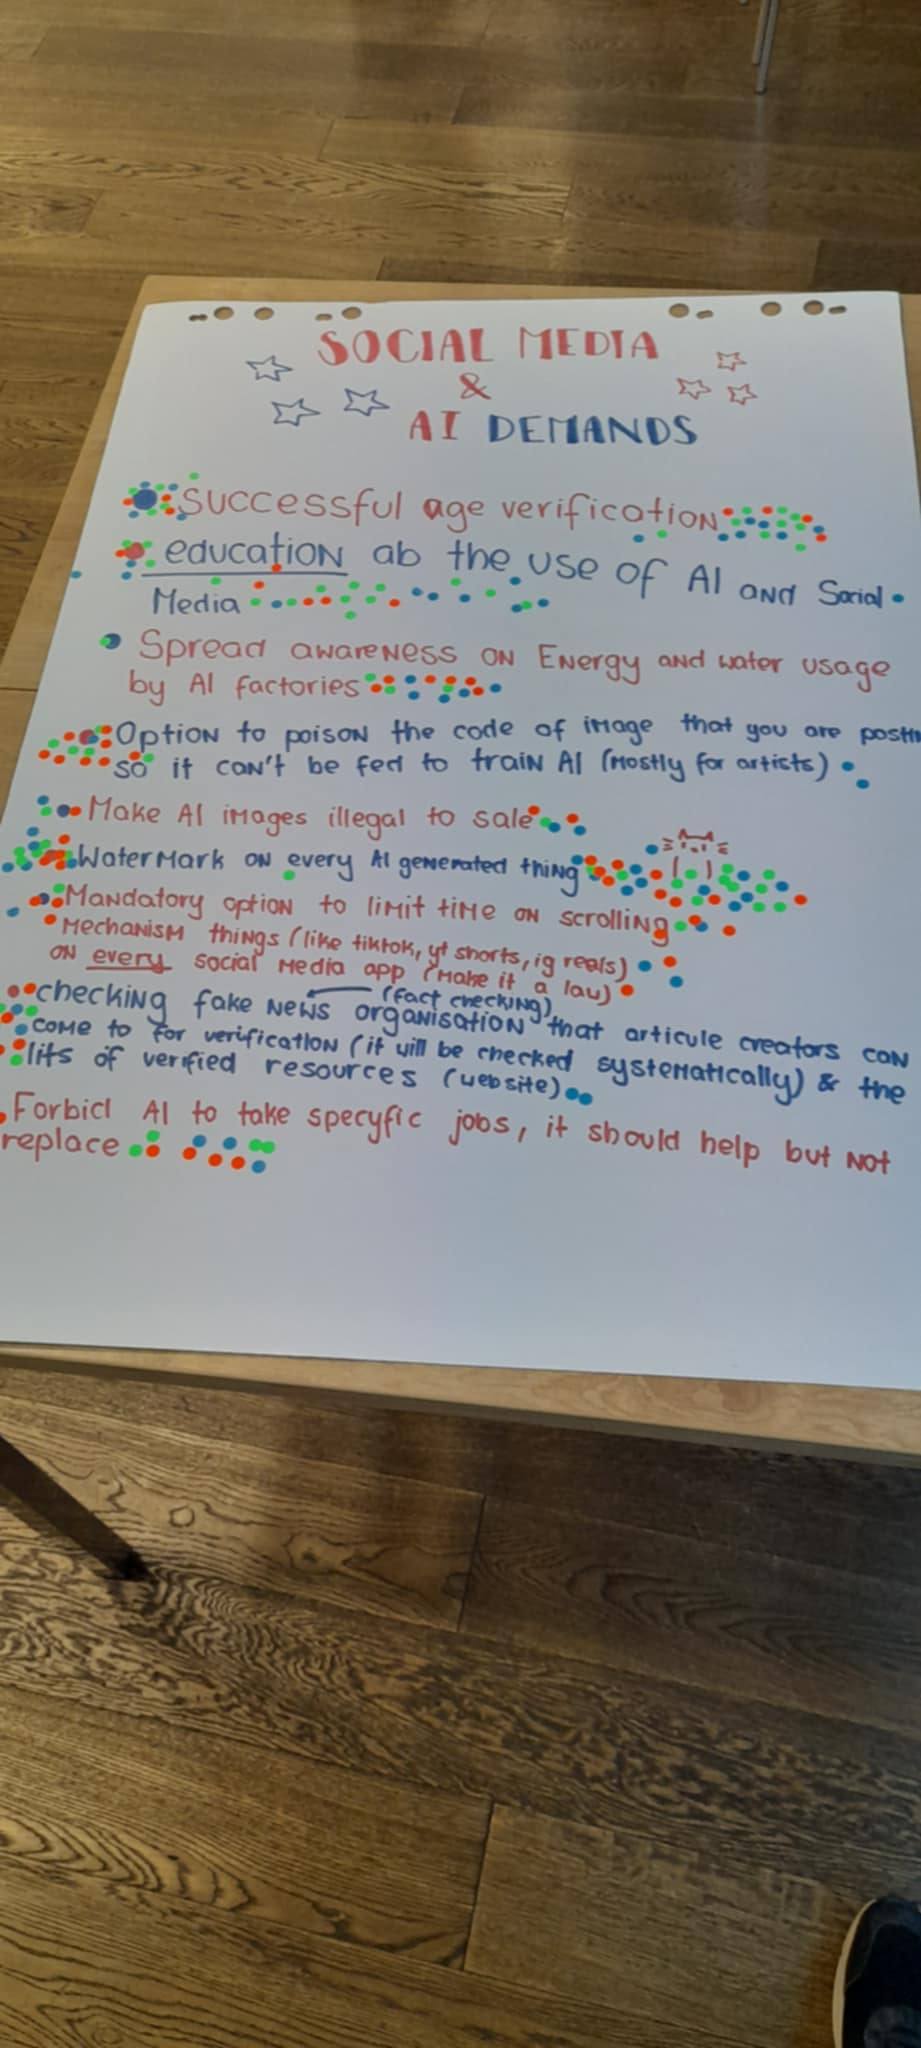 SOCIAL MEDIA
&
AI DEMANDS
Successful age verification
education ab the use of AI and Social
Media
Spread awareness on Energy and water usage
by AI factories
Option to poison the code of image that you are postin
so it can't be fed to train AI (mostly for artists)
Make AI images illegal to sale
Watermark on every AI generated thing
Mandatory option to limit time on scrolling
mechanism things (like tiktok, yt shorts, ig reals)
on every social media app (make it a law)
checking fake news (fact checking) organisation that articule creators can
come to for verification (it will be checked systematically) & the
lits of verified resources (website)
Forbid AI to take specyfic jobs, it should help but not
replace